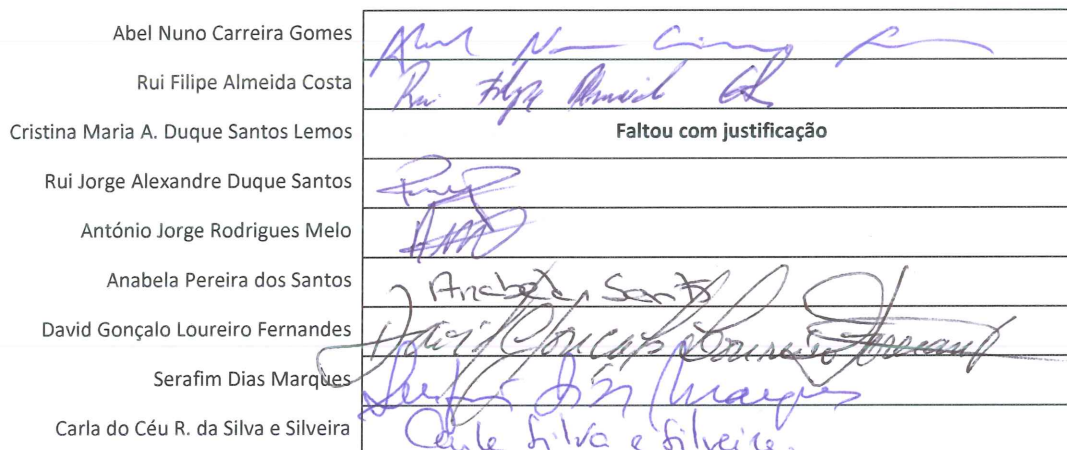 Abel Nuno Carreira Gomes
Rui Filipe Almeida Costa Rui Filipe Almeida
Cristina Maria A. Duque Santos Lemos Faltou com justificação
Rui Jorge Alexandre Duque Santos
António Jorge Rodrigues Melo
Anabela Pereira dos Santos Anabela Santos
David Gonçalo Loureiro Fernandes David Gonçalo Loureiro Fernandes
Serafim Dias Marques Serafim Dias Marques
Carla do Céu R. da Silva e Silveira Carla Silva e Silveira